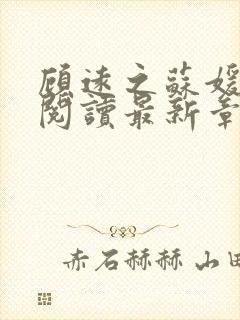 顾远之蘇媛
閱讀最新章
赤石赫赫 山田